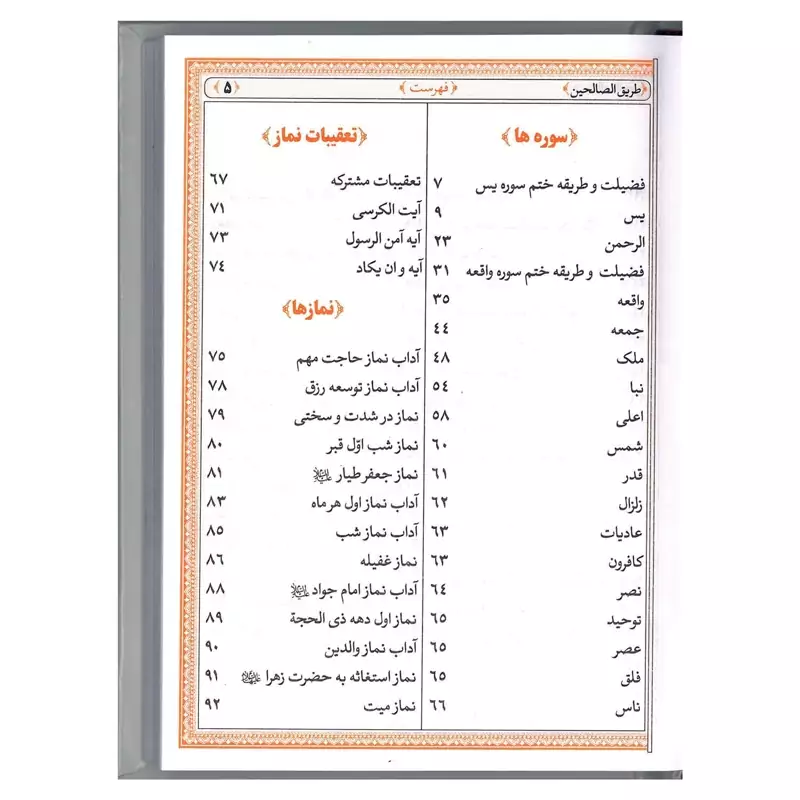 طریق الصالحین
﴿فهرست﴾
﴿۵﴾
﴿سوره ها﴾
فضیلت و طریقه ختم سوره یس ۷
یس ۹
الرحمن ۲۳
فضیلت و طریقه ختم سوره واقعه ۳۱
واقعه ۳۵
جمعه ٤٤
ملک ٤۸
نبا ٥٤
اعلی ۵۸
شمس ٦۰
قدر ٦۱
زلزال ٦۲
عادیات ٦۳
کافرون ٦۳
نصر ٦٤
توحید ٦۵
عصر ٦۵
فلق ٦۵
ناس ٦٦
﴿تعقیبات نماز﴾
تعقیبات مشترکه ٦۷
آیت الکرسی ۷۱
آیه آمن الرسول ۷۳
آیه و ان یکاد ۷٤
﴿نمازها﴾
آداب نماز حاجت مهم ۷۵
آداب نماز توسعه رزق ۷۸
نماز در شدت و سختی ۷۹
نماز شب اوّل قبر ۸۰
نماز جعفر طیار ۸۱
آداب نماز اول هر ماه ۸۳
آداب نماز شب ۸۵
نماز غفیله ۸٦
آداب نماز امام جواد ۸۸
نماز اول دهه ذی الحجة ۸۹
آداب نماز والدین ۹۰
نماز استغاثه به حضرت زهرا ۹۱
نماز میت ۹۲